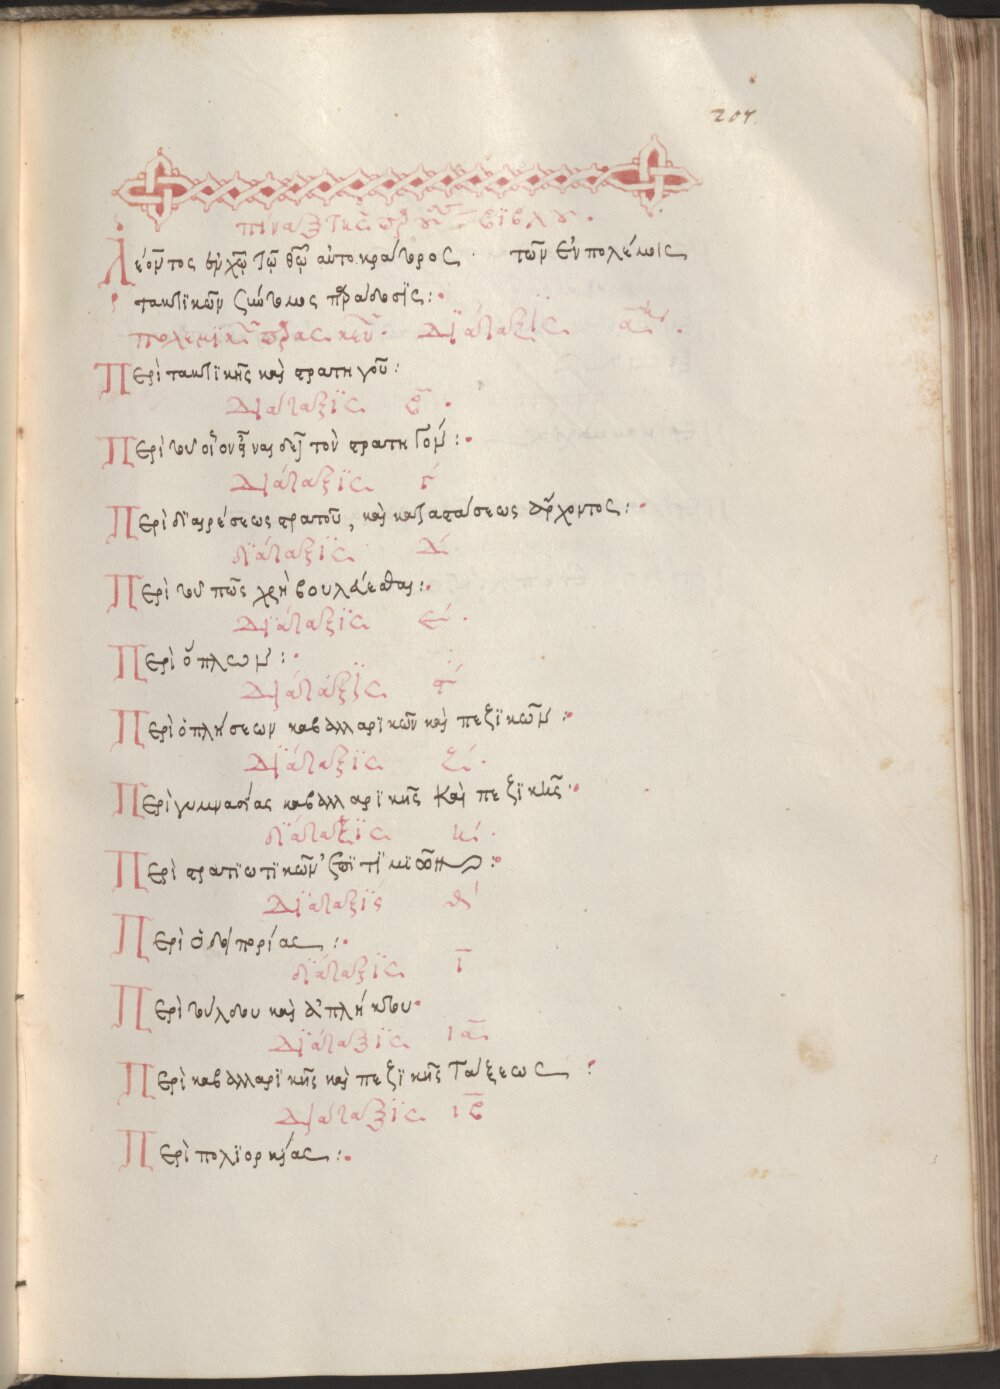 207
πίναξ τῆς παρούσης βίβλου.
Λέοντος ἐν χῶ τῶ θῶ αὐτοκράτορος. τῶν ἐν πολέμοις
τακτικῶν σύντομος παράδοσις:
πολεμικῶν παρασκευῶν. Διάταξις α
Περὶ τακτικῆς καὶ στρατηγοῦ:
Διάταξις β.
Περὶ τοῦ οἷον εἶναι δεῖ τὸν στρατηγόν:
Διάταξις γ
Περὶ διαιρέσεως στρατοῦ, καὶ καταστάσεως ἄρχοντος:
διάταξις δ
Περὶ τοῦ πῶς χρὴ βουλεύεσθαι:
Διάταξις ε.
Περὶ ὅπλων:
Διάταξις ϛ
Περὶ ὁπλήσεων καβαλλαρικῶν καὶ πεζικῶν:
Διάταξις ζ.
Περὶ γυμνασίας καβαλλαρικῆς καὶ πεζικῆς.
διάταξις η.
Περὶ στρατιωτικῶν ἐπιτιμίων:
Διάταξις θ
Περὶ ὁδοιπορίας:
διάταξις ι
Περὶ τούλδου καὶ ἀπλήκτου.
Διάταξις ια
Περὶ καβαλλαρικῆς καὶ πεζικῆς τάξεως:
Διάταξις ιβ
Περὶ πολιορκίας: